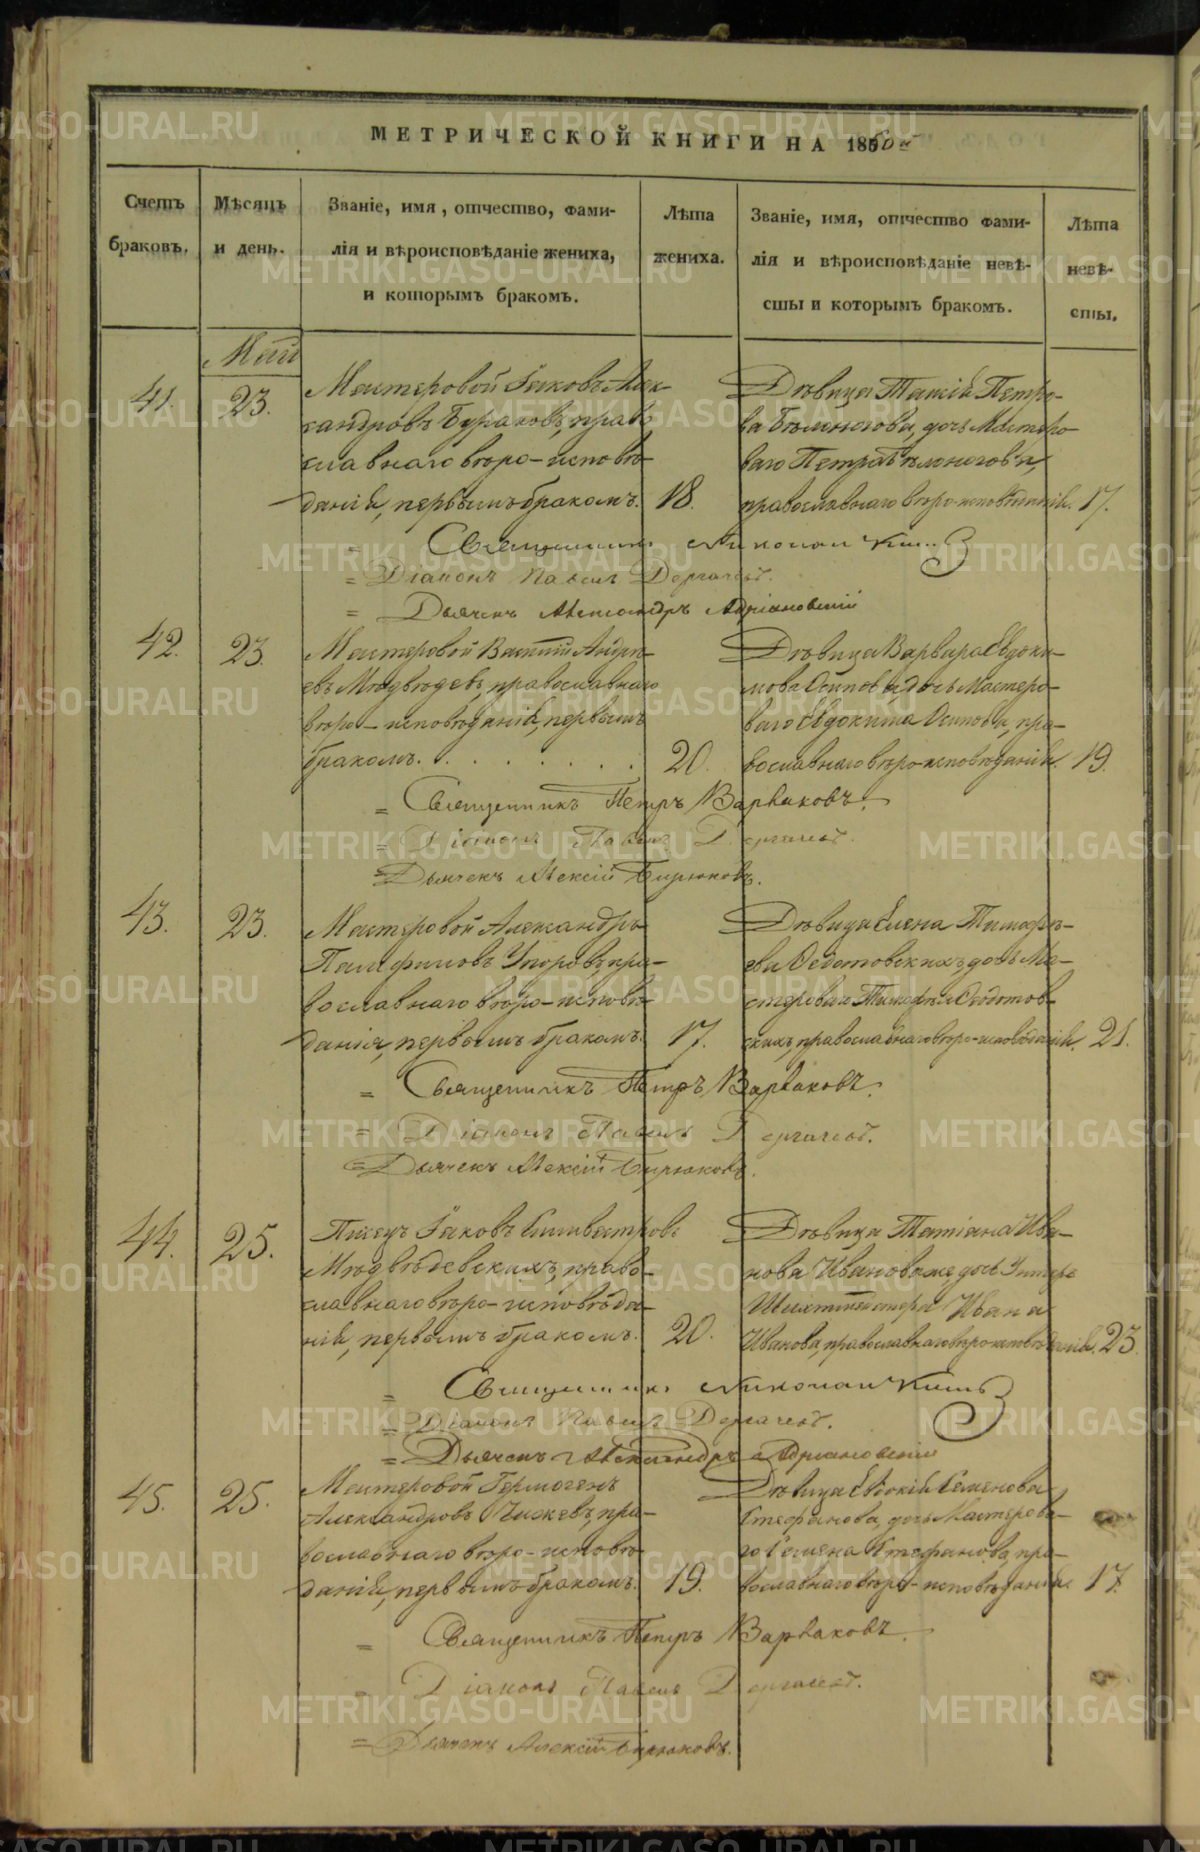 МЕТРИЧЕСКОЙ КНИГИ НА 185
Счетъ браковъ.
Мѣсяцъ и день.
Званіе, имя, отчество, фами-
лія и вѣроисповѣданіе жениха,
и которымъ бракомъ.
Лѣта жениха.
Званіе, имя, отчество фами-
лія и вѣроисповѣданіе невѣ-
сты и которымъ бракомъ.
Лѣта невѣ-
сты.
Маій
41. 23. Мастеровой Іаковъ Алек-
сандровъ Бураковъ, право
славнаго вѣро-исповѣ-
данія, первымъ бракомъ. 18.
Дѣвица Петро-
ва Бѣлоногова, дочь Мастеро-
ваго Петра Бѣлоногова,
православнаго вѣро-исповѣданія. 17.
= Священникъ Николай
= Діаконъ Павелъ Дергачевъ.
= Дьячекъ Александръ Адріановскій
42. 23. Мастеровой Василій Андре-
евъ Медвѣдевъ, православнаго
вѣро-исповѣданія, первымъ
бракомъ. . . . . . . . 20.
Дѣвица Варвара Евдоки-
мова Осипова, дочь Мастеро-
ваго Евдокима Осипова, пра-
вославнаго вѣро-исповѣданія. 19.
= Священникъ Петръ Варваковъ.
= Діаконъ Павелъ Дергачевъ.
= Дьячекъ Алексій Бирюковъ.
43. 23. Мастеровой Александръ
Памфиловъ Упоровъ, пра-
вославнаго вѣро-исповѣ-
данія, первымъ бракомъ. 17.
Дѣвица Елена Тимофѣ-
ева Ѳедотовскихъ, дочь Ма-
стероваго Тимофѣя Ѳедотов-
скихъ, православнаго вѣро-исповѣданія. 21.
= Священникъ Петръ Варваковъ.
= Діаконъ Павелъ Дергачевъ.
= Дьячекъ Алексій Бирюковъ.
44. 25. Писецъ Іаковъ Силивестровъ
Медвѣдевскихъ, право-
славнаго вѣро-исповѣда-
нія, первымъ бракомъ. 20.
Дѣвица Татіана Ива-
нова Иванова же, дочь Унтеръ
Шихтмейстера Ивана
Иванова, православнаго вѣро-исповѣданія. 23.
= Священникъ Николай
= Діаконъ Павелъ Дергачевъ.
= Дьячекъ Александръ Адріановскій
45. 25. Мастеровой Гермогенъ
Александровъ Чижевъ, пра-
вославнаго вѣро-исповѣ-
данія, первымъ бракомъ. 19.
Дѣвица Евдокія Семенова
Стефанова, дочь Мастерова-
го Семена Стефанова, пра-
вославнаго вѣро-исповѣданія. 17.
= Священникъ Петръ Варваковъ.
= Діаконъ Павелъ Дергачевъ.
= Дьячекъ Алексій Бирюковъ.
METRIKI.GASO-URAL.RU